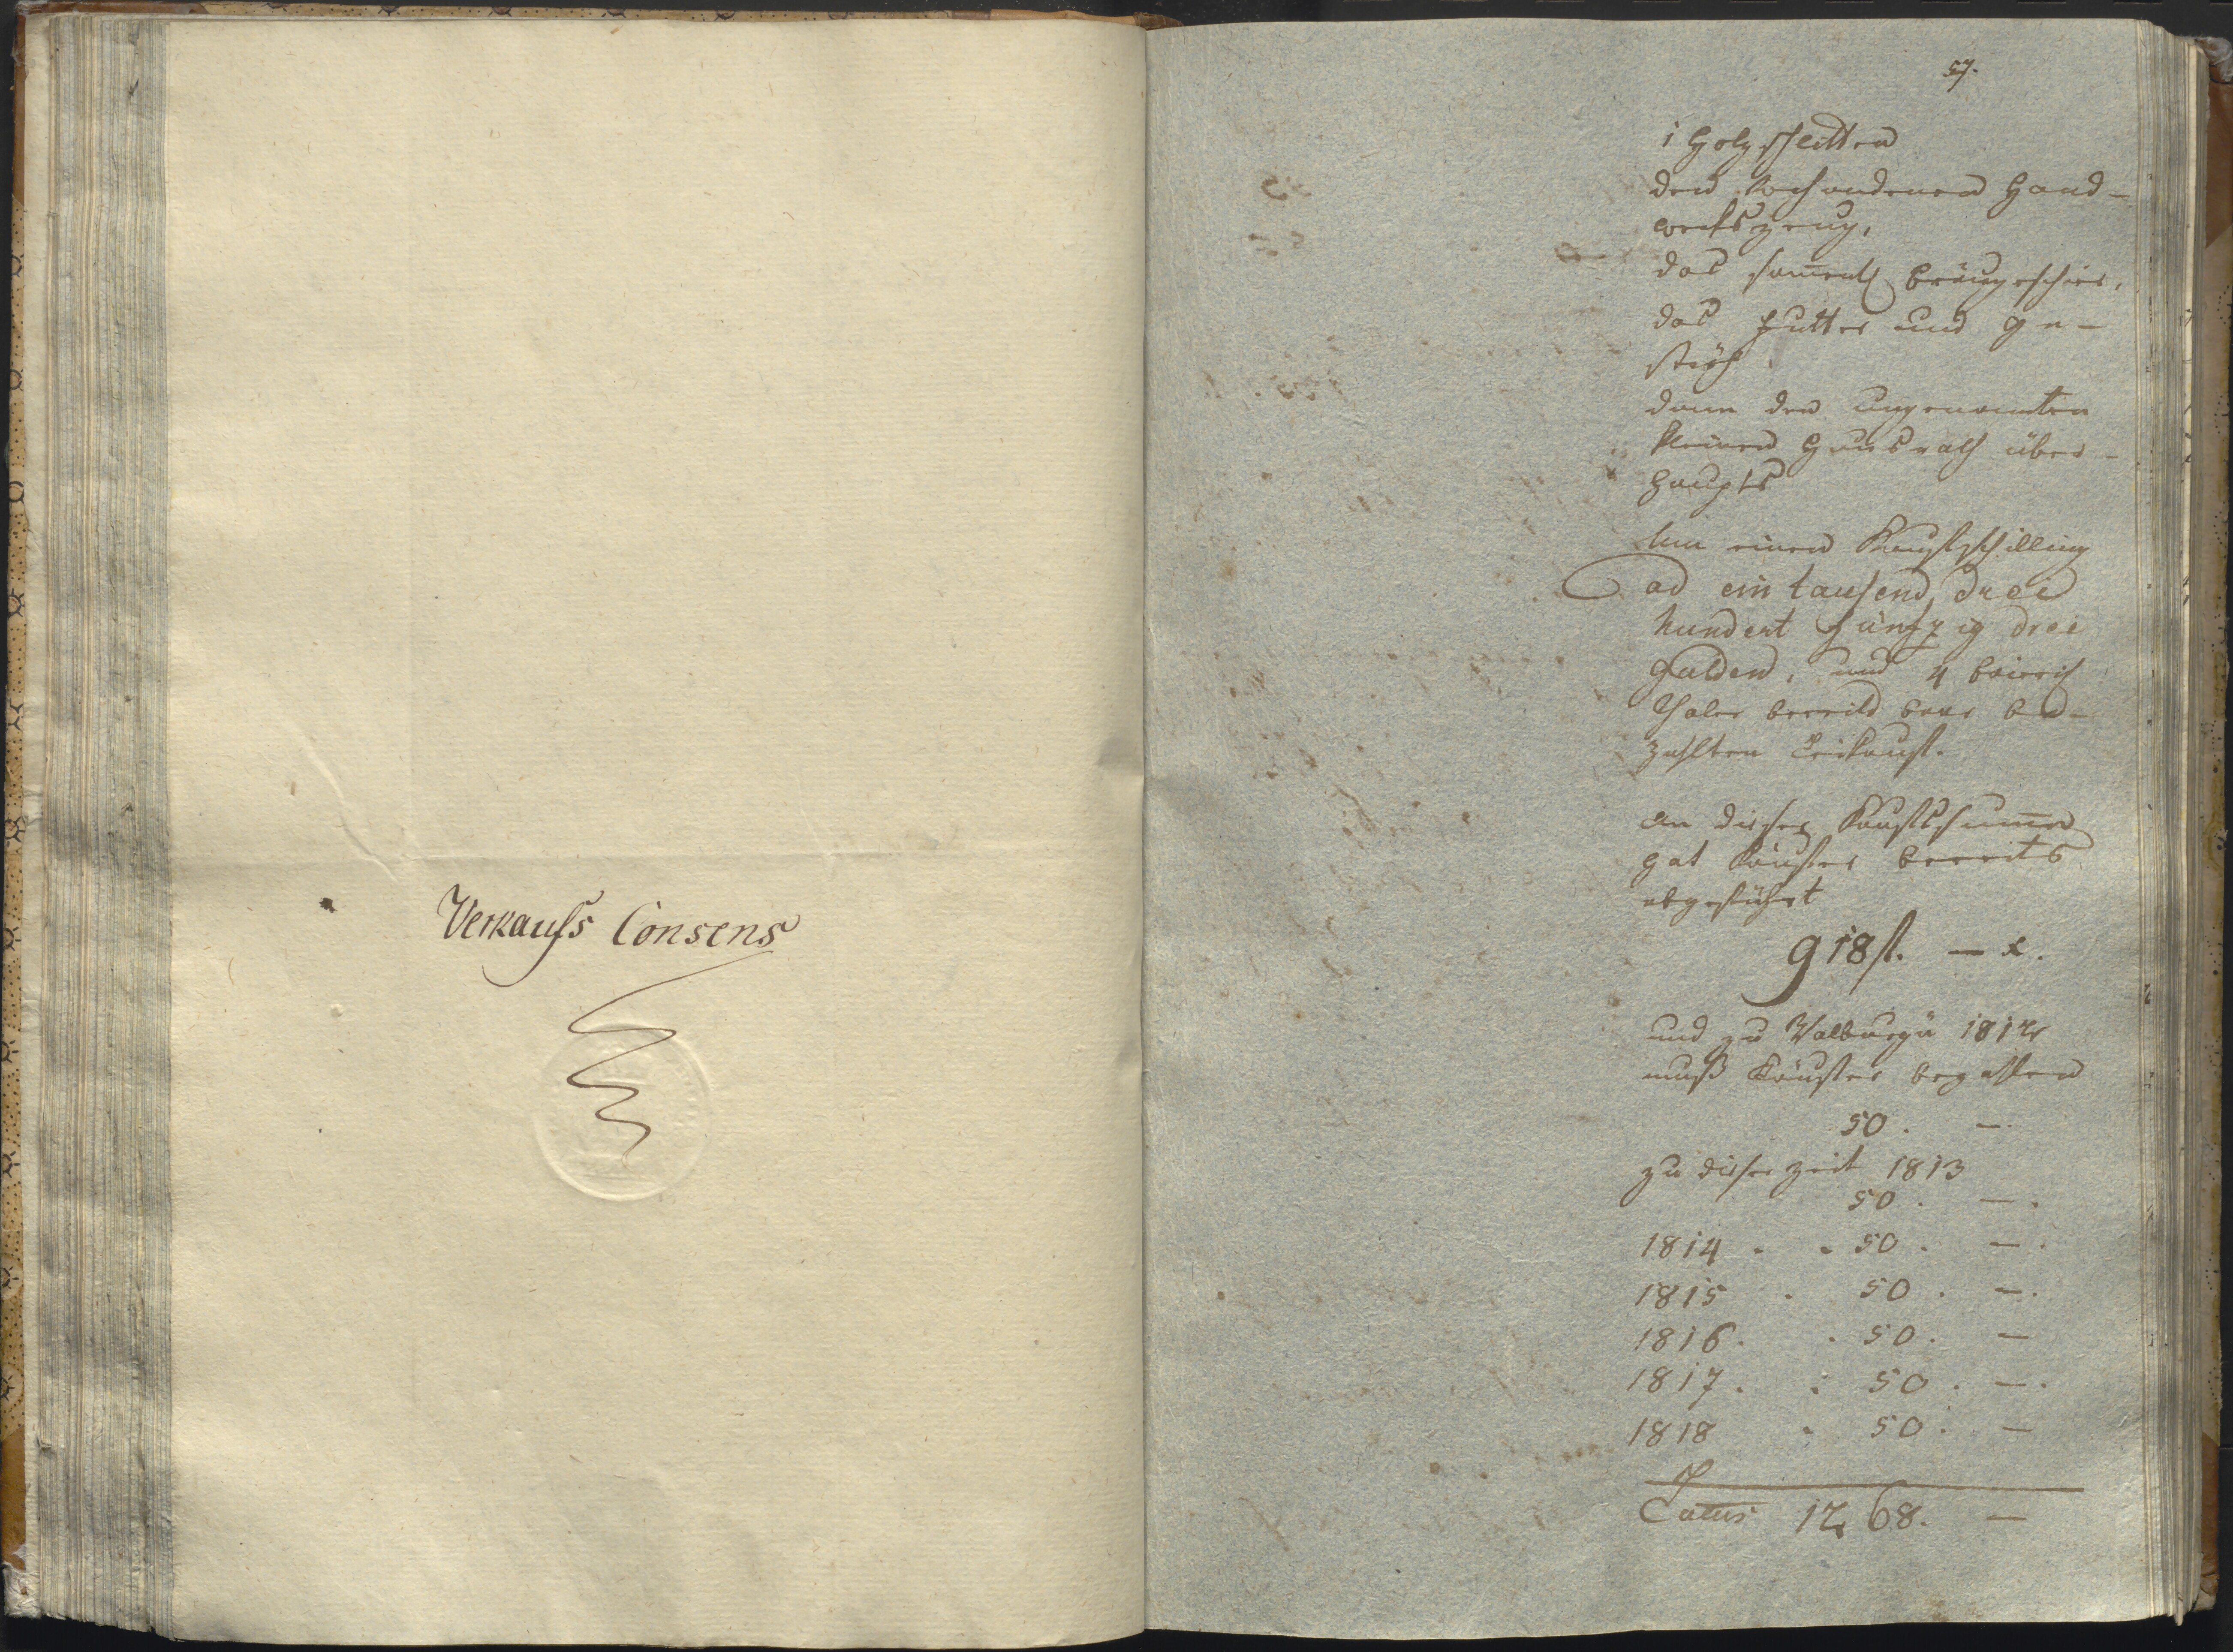 Verkaufs Consens
57.
1 Holzschlitten
den vorhandenen Hand-
werkszeug,
das sam̄entl Bräugeschirr,
das Futter und Ge-
ströh
dann den ungenannten
kleinen Hausrath über-
haupts
Um einen Kaufschilling
ad ein tausend, drei
hundert fünfzig drei
Gulden, und 4 bairisch
Thaler bereits baar be-
zahlten Leikauf.
An dieser Kaufssum̄e
hat Käufer bereits
abgeführt
918 f. — x.
und zu Walburgi 1812
muß Käufer bezahlen
50. —.
zu dieser Zeit 1813
50. —.
1814 . . 50. —.
1815 . 50. —.
1816. . 50. —
1817. . 50. —.
1818 . 50. —
Latus 1268. —